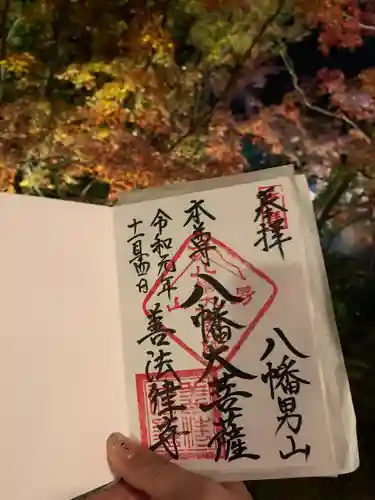 奉拝
八幡男山
本尊
八幡大菩薩
令和元年
十一月廿四日
善法律寺